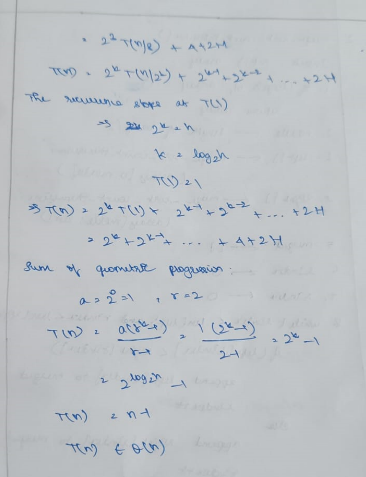 = 2³ T(n/8) + 4+2+1
T(n) = 2ᵏ T(n/2ᵏ) + 2ᵏ⁻¹ + 2ᵏ⁻² + ... +2+1
The recurrence stops at T(1)
⇒ 2ᵏ = n
k = log₂n
T(1) = 1
⇒ T(n) = 2ᵏ T(1) + 2ᵏ⁻¹ + 2ᵏ⁻² + ... +2+1
= 2ᵏ + 2ᵏ⁻¹ + ... + 4+2+1
Sum of geometric progression :-
a = 2⁰ = 1 , r = 2
T(n) = a(rᵏ-1) / r-1 = 1 (2ᵏ-1) / 2-1 = 2ᵏ - 1
= 2^log₂n - 1
T(n) = n-1
T(n) ∈ θ(n)